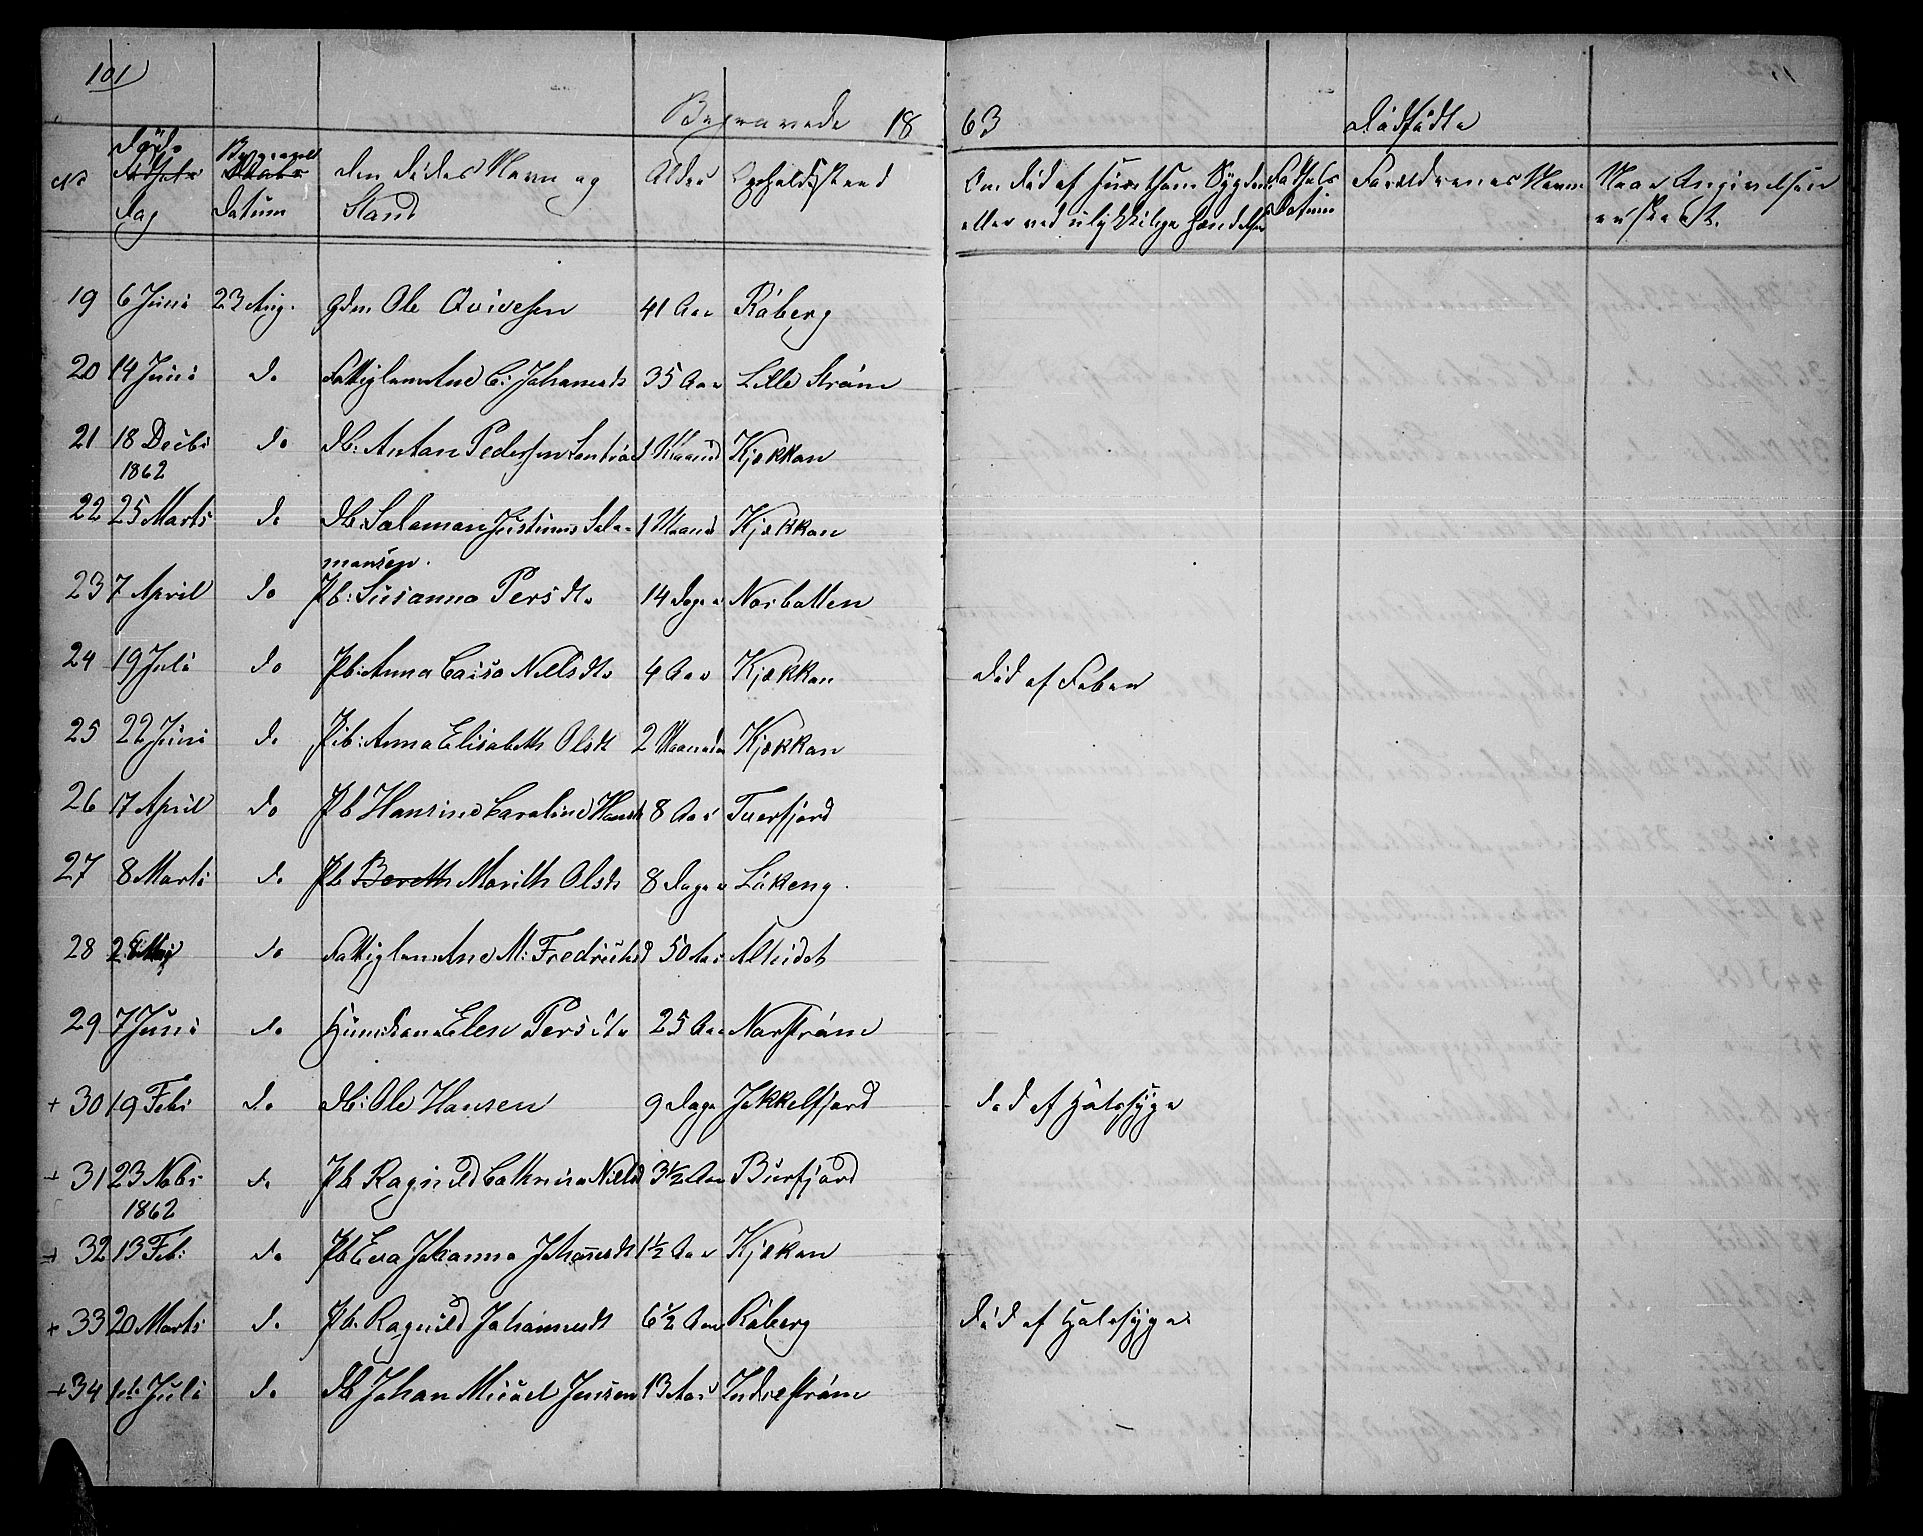 101
Begravede 18 63 Dødfødte
No Døds Fødsels Dag Begravel Daabs Datum Den Dødes Navn og Stand Alder Opholdssted Om død af smitsom Sygdom eller ved ulykkelige Hændelser Fødsels Datum Forældrenes Navne Naar Angivelsen er skeet.
19 6 Juni 23 Aug. gdm Ole Qvivesen 41 Aar Råberg
20 14 Juni do Fattiglem Ane C: Johansdt 35 Aar Lille Strøm
21 18 Decbr 1862 do Db: Anton Pedersen 1 Maaned Kjækkan
22 25 Marts do Db: Salamon Justinus Sala= 1 Maaned Kjækkan
monsen.
23 7 April do Pb: Susanna Persdtr 14 Dage Norbotten
24 19 Juli do Pb: Anna Caisa Nilsdtr 4 Aar Kjækkan død af Feber
25 22 Juni do Pib: Anna Elisabeth Olsdt 2 Maaneder Kjækkan
26 17 April do Pb Hansine Caroline Hansd 8 Aar Tuerfjord
27 8 Marts do Pb Bereth Marith Olsdt 8 Dage Låkeng.
28 Maj do Fattiglem Ane M: Fredriksd 50 Aar Alteidet
29 7 Juni do Huuskone Elen Persdtr 25 Aar Norstrøm
+ 30 19 Febr do Db: Ole Hansen 9 Dage Jøkkelfjord død af Halssyge
+ 31 23 Nobr 1862 do Pb Ragnild Cathrina Nilsd 3½ Aar Burfjord
+ 32 13 Feb: do Pb Eva Johanna Johannesdt 1½ Aar Kjækan
+ 33 20 Marts do Pb. Ragnild Johannesdt 6½ Aar Råberg død af Halssyge
+ 34 1ste Juli do Db Johan Micael Jensen 13 Aar Indrestrøm